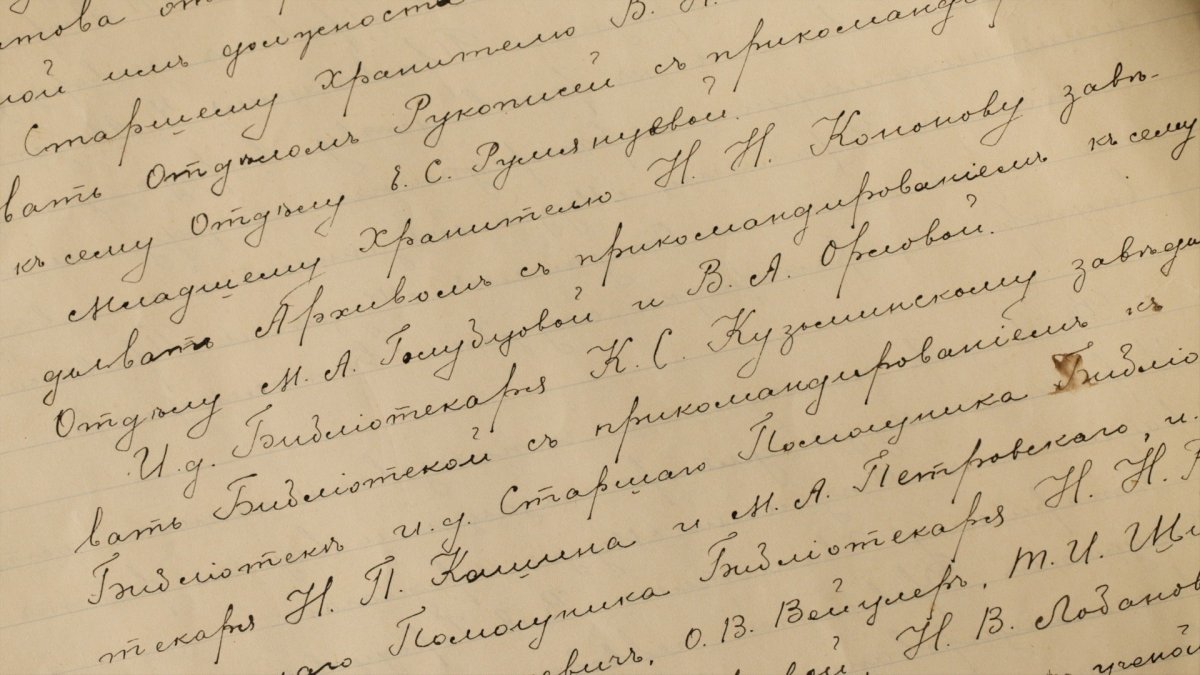 ной имъ должности
Старшему Хранителю В. Н.
вать Отдѣломъ Рукописей съ прикоманди
къ сему Отдѣлу Е. С. Румянцевой.
Младшему Хранителю Н. Н. Кононову завѣ-
дывать Архивомъ съ прикомандированіемъ къ сему
Отдѣлу М. А. Голубцовой и В. А. Орловой.
И. д. Библіотекаря К. С. Кузьминскому завѣды
вать Библіотекой съ прикомандированіемъ къ
Библіотекѣ и. д. Старшаго Помощника Библіо
текаря Н. П. Кашина и М. А. Петровскаго, и.
Помощника Библіотекаря Н. Н.
евичъ, О. В. Вейцлеръ, Т. И. Щи
вой Н. В. Лобанов
ученой